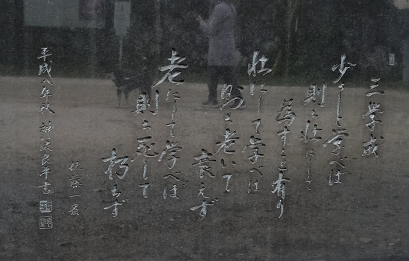 三學戒
少にして学べば
則ち壮にして
為すこと有り
壮にして学べば
則ち老いて
衰えず
老にして学べば
則ち死して
朽ちず
佐藤一斎
平成八年秋